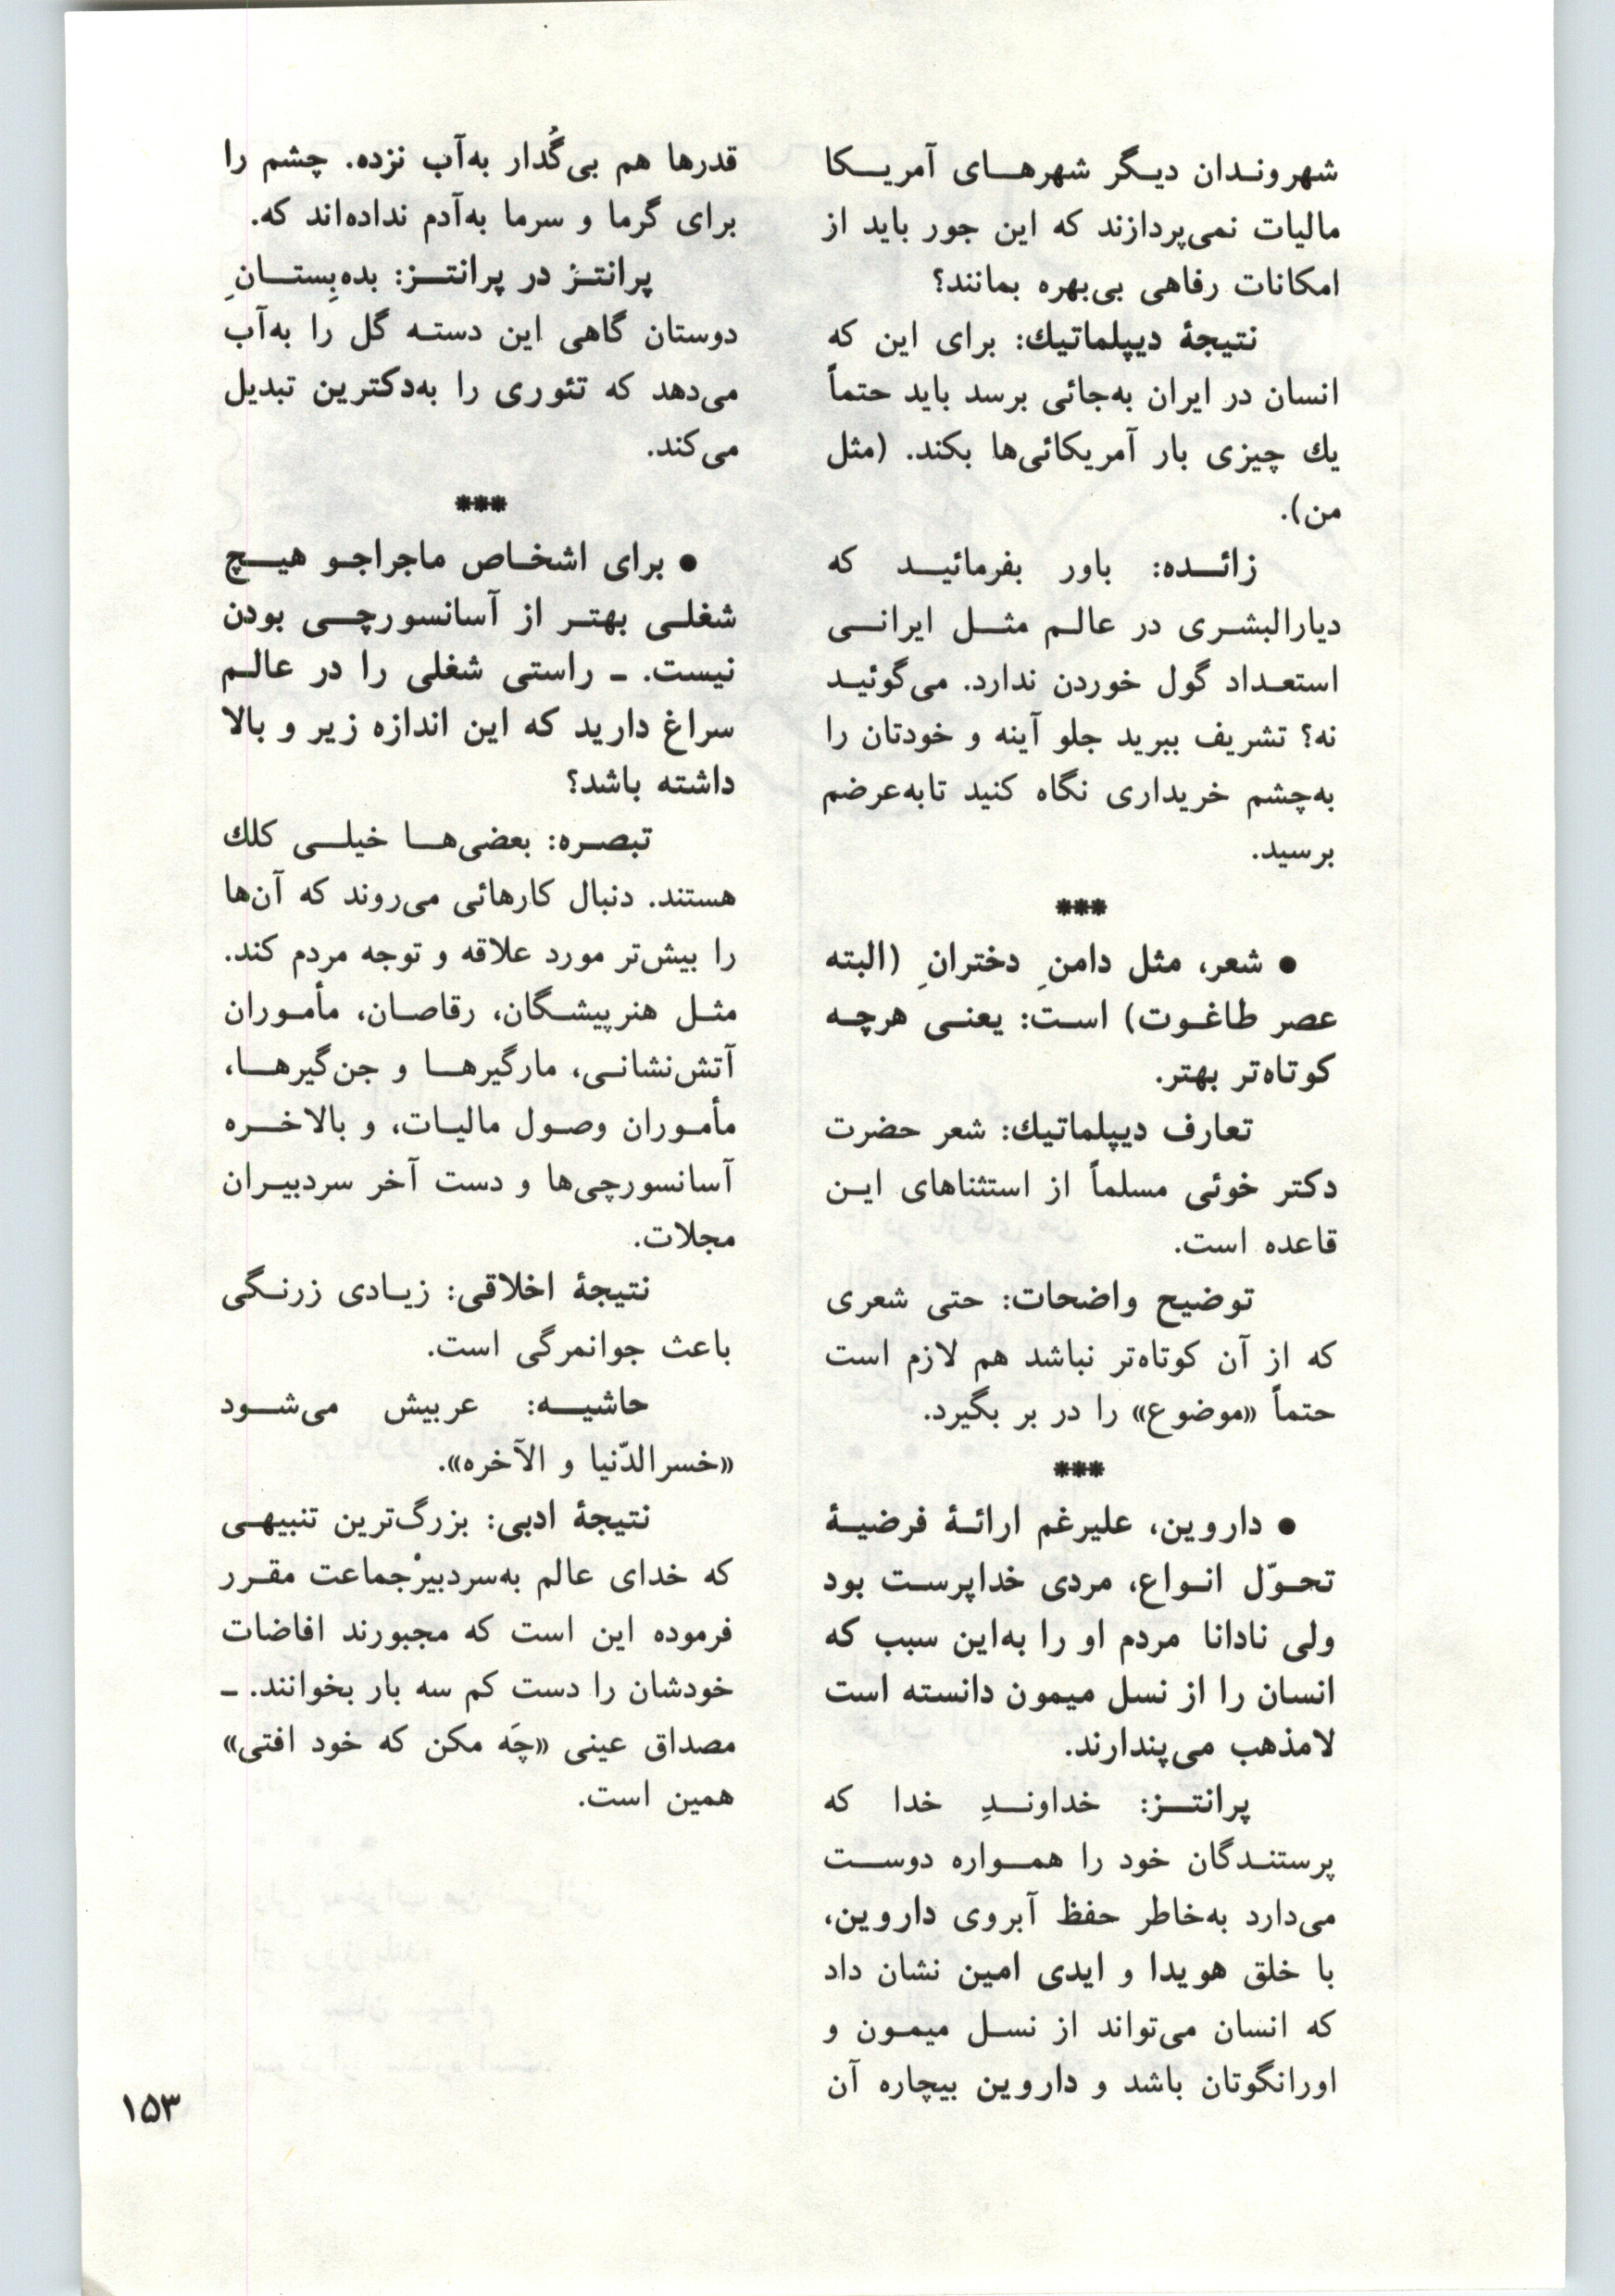 شهروندان دیگر شهرهای آمریکا
مالیات نمی‌پردازند که این جور باید از
امکانات رفاهی بی‌بهره بمانند؟
نتیجهٔ دیپلماتیك: برای این که
انسان در ایران به‌جائی برسد باید حتماً
یك چیزی بار آمریکائی‌ها بکند. (مثل
من).
زائده: باور بفرمائید که
دیارالبشری در عالم مثل ایرانی
استعداد گول خوردن ندارد. می‌گوئید
نه؟ تشریف ببرید جلو آینه و خودتان را
به‌چشم خریداری نگاه کنید تابه‌عرضم
برسید.
***
● شعر، مثل دامنِ دخترانِ (البته
عصر طاغوت) است: یعنی هرچه
کوتاه‌تر بهتر.
تعارف دیپلماتیك: شعر حضرت
دکتر خوئی مسلماً از استثناهای این
قاعده است.
توضیح واضحات: حتی شعری
که از آن کوتاه‌تر نباشد هم لازم است
حتماً «موضوع» را در بر بگیرد.
***
● داروین، علیرغم ارائهٔ فرضیهٔ
تحوّل انواع، مردی خداپرست بود
ولی نادانا مردم او را به‌این سبب که
انسان را از نسل میمون دانسته است
لامذهب می‌پندارند.
پرانتز: خداوندِ خدا که
پرستندگان خود را همواره دوست
می‌دارد به‌خاطر حفظ آبروی داروین،
با خلق هویدا و ایدی امین نشان داد
که انسان می‌تواند از نسل میمون و
اورانگوتان باشد و داروین بیچاره آن
قدرها هم بی‌گُدار به‌آب نزده. چشم را
برای گرما و سرما به‌آدم نداده‌اند که.
پرانتز در پرانتز: بده‌بِستانِ
دوستان گاهی این دسته گل را به‌آب
می‌دهد که تئوری را به‌دکترین تبدیل
می‌کند.
***
● برای اشخاص ماجراجو هیچ
شغلی بهتر از آسانسورچی بودن
نیست. ـ راستی شغلی را در عالم
سراغ دارید که این اندازه زیر و بالا
داشته باشد؟
تبصره: بعضی‌ها خیلی کلك
هستند. دنبال کارهائی می‌روند که آن‌ها
را بیش‌تر مورد علاقه و توجه مردم کند.
مثل هنرپیشگان، رقاصان، مأموران
آتش‌نشانی، مارگیرها و جن‌گیرها،
مأموران وصول مالیات، و بالاخره
آسانسورچی‌ها و دست آخر سردبیران
مجلات.
نتیجهٔ اخلاقی: زیادی زرنگی
باعث جوانمرگی است.
حاشیه: عربیش می‌شود
«خسرالدّنیا و الآخره».
نتیجهٔ ادبی: بزرگ‌ترین تنبیهی
که خدای عالم به‌سردبیرْجماعت مقرر
فرموده این است که مجبورند افاضات
خودشان را دست کم سه بار بخوانند. ـ
مصداق عینی «چَه مکن که خود افتی»
همین است.
۱۵۳